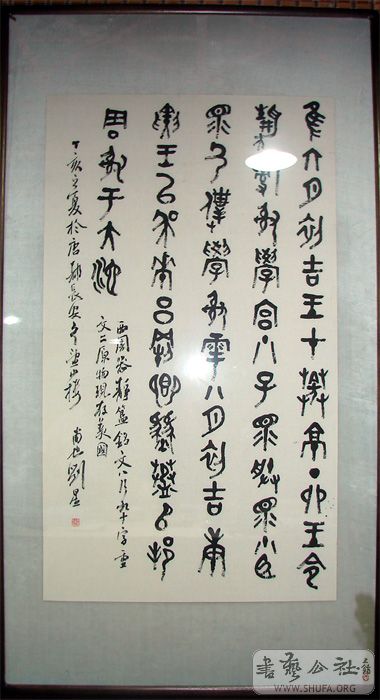 隹六月初吉王才京丁卯王令
靜司射學宮小子眔服眔小臣
眔尸僕學射雩八月初吉庚
寅王以吳呂犅卿邦
周射于大池
西周器靜簋銘文
文二原物現存美國
丁亥之夏於唐都長安山樓 劉星
書藝公社
WWW.SHUFA.ORG